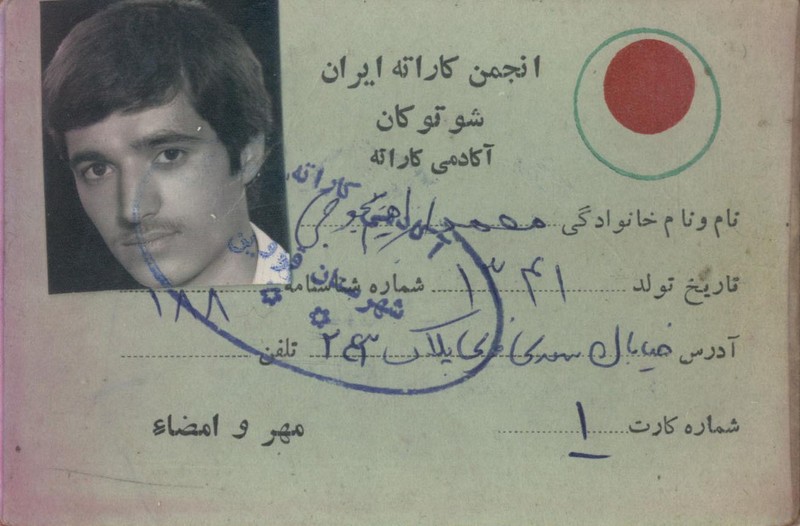 انجمن کاراته ایران
شوتوکان
آکادمی کاراته
نام و نام خانوادگی محمد ابراهیم
تاریخ تولد ۱۳۴۱ شماره شناسنامه ۱۸۸
آدرس خیابان سعدی پلاک ۲۴۳ تلفن
شماره کارت ۱
مهر و امضاء
کاراته
شهرستان قزوین